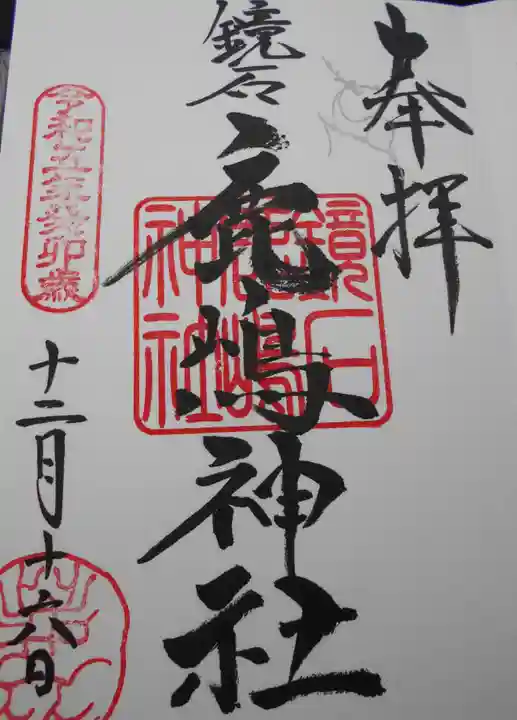 奉拝
鏡石
鹿嶋神社
鏡石
鹿嶋
神社
令和五年癸卯歳
十二月十六日